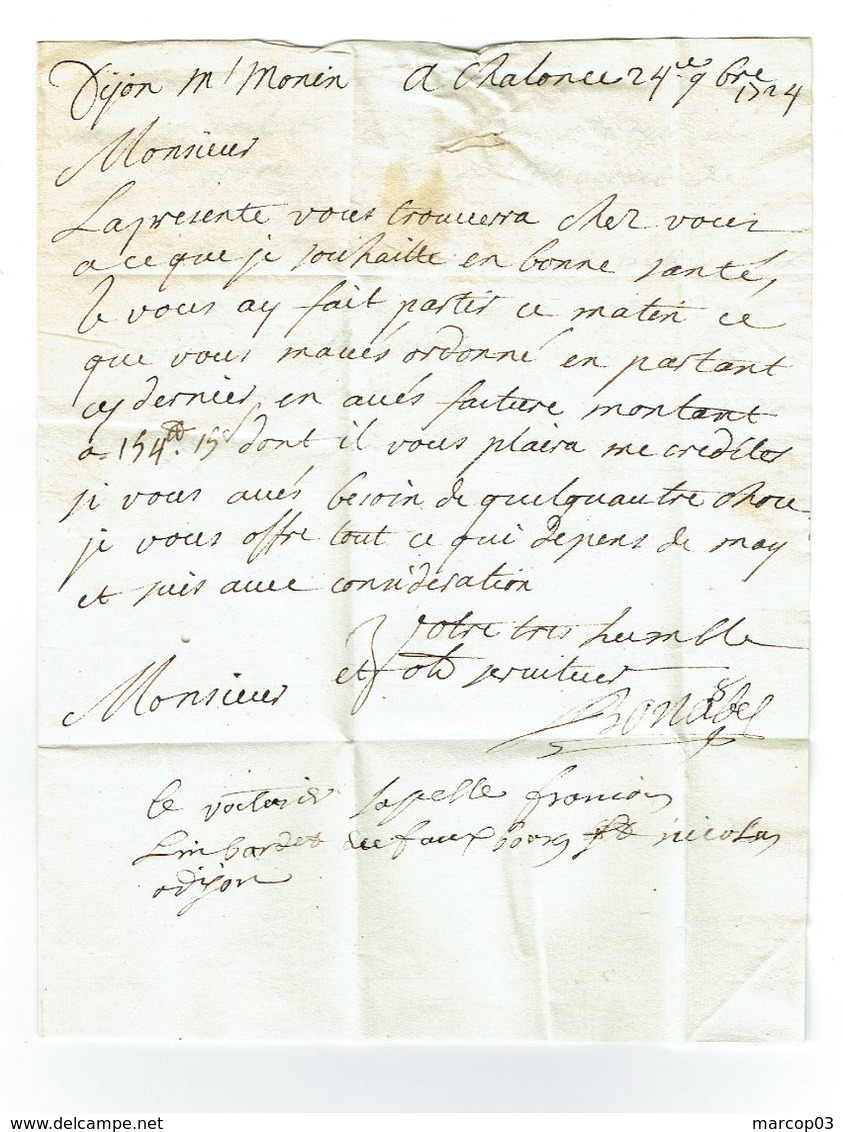 Dijon Mr Monin A Chalon ce 24e 9bre
1724
Monsieur
La presente vous trouuerra chez vous
a ce que je souhaitte en bonne santé,
Je vous ay fait partir ce matin ce
que vous maués ordonné en partant
cy dernier, en aués facture montant
a 154tt. 15s dont il vous plaira me crediter
si vous aués besoin de quelquautre chose
je vous offre tout ce qui depens de moy
et suis auec consideration
Votre tres humble
et ob serviteur
Monsieur
Bonabel
le voiturié sapelle francois
Limbardet du faux bourg St nicolas
a dijon
marcop03